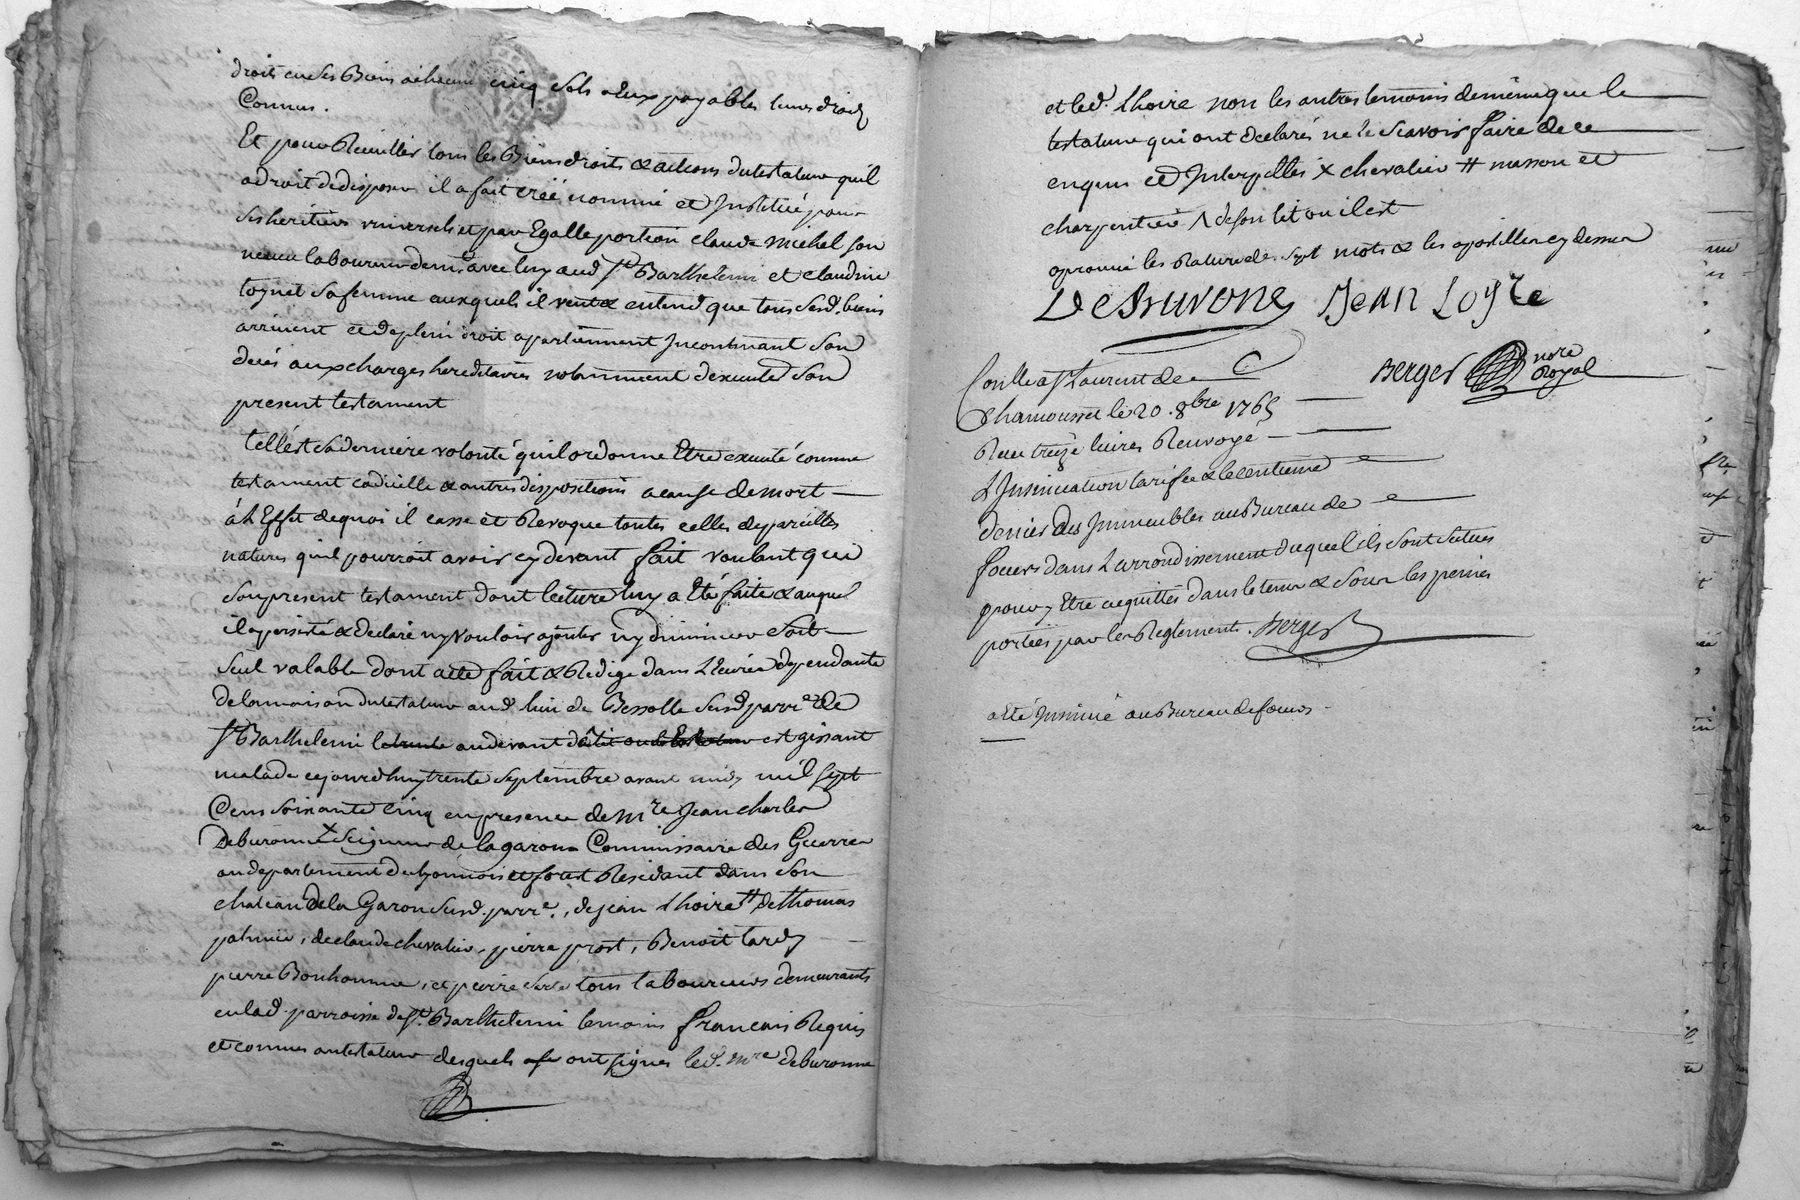 droits en ses Biens a chacun cinq sols a Eux payables leurs droits
Connus.
Et pour Recuillir tous les Biens droits & actions du testateur quil
a droit de disposer il a fait créé nommé et Institué pour
ses heritiers universels et par Egalle portion claude michel son
neveu laboureur demt avec luy aud St Barthelemi et claudine
sa femme auxquels il veut & entend que tous sesd. biens
arrivent et de plein droit apartiennent Incontinant son
decés aux charges hereditaires notamment dexecuter son
present testament
telle est sa derniere volonté quil ordonne Etre executé comme
testament codicille & autres dispositions a cause de mort
à L'Effet dequoi il casse et Revoque toutes celles de pareilles
natures quil pourroit avoir cy devant fait voulant que
son present testament dont lecture luy a Eté faite & auquel
il a persisté & declaré ny vouloir ajouter ny diminuer soit
seul valable dont acte fait & Redigé dans L'Ecurie dependante
de la maison du testateur aud. lieu de Bessolle susd parre de
St Barthelemi au devant est gissant
malade cejourdhuy trente septembre avant midy mil sept
Cens soixante cinq en presence de Mre Jean charles
Deburonne x Seigneur de la garon Commissaire des Guerres
au departement de Lyonnois et forest Residant dans son
chateau de la Garon susd. parre., de jean Lhoire # de thomas
palmier, de claude chevalier, pierre prost, Benoit tardy
pierre Bonhomme, et pierre tous laboureurs demeurants
en lad. parroisse de St. Barthelemi temoins francois Requis
et connus au testateur desquels ont signés led. Mre deburonne
et led. Lhoire non les autres temoins de même que le
testateur qui ont declarés ne le scavoir faire de ce
enquis et Interpellés x chevalier # masson et
charpentier Λ de son lit ou il est
aprouvé les Rature de sept mots & les apostilles cy dessus
DeBurone Jean Loyre
Berger nore
Royal
Conllé a St Laurent de
Chamousset le 20. 8bre 1765
Reçu treize livres Renvoyé
L'Insinuation tarifée & le centieme
denier des Immeubles au Bureau de
foeurs dans L'arrondissement duquel ils sont situés
pour y Etre acquittés dans le tems & sous les peines
portées par les Reglements. Berger
a Eté Insinué au Bureau de foeurs